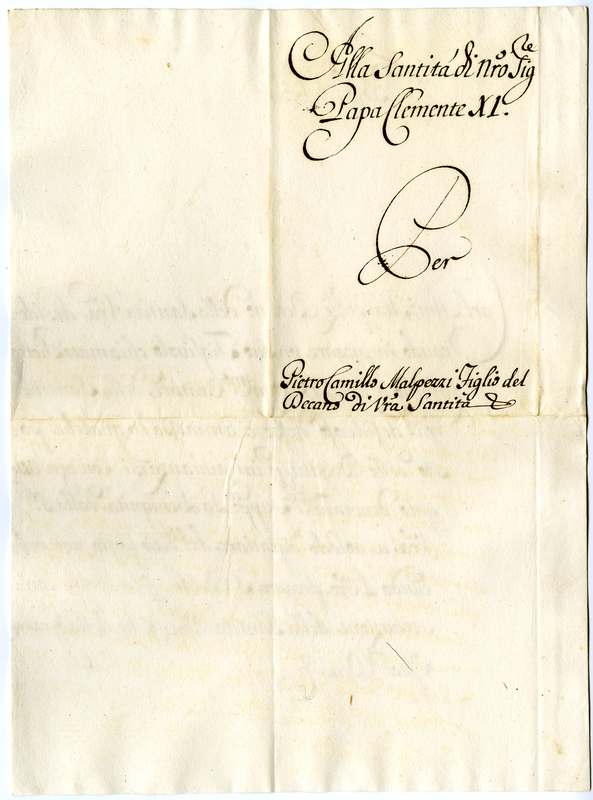 Alla Santità di Nrõ Sig.re
Papa Clemente XI.
Per
Pietro Camillo Malpezzi Figlio del
Decano di Vrã Santità